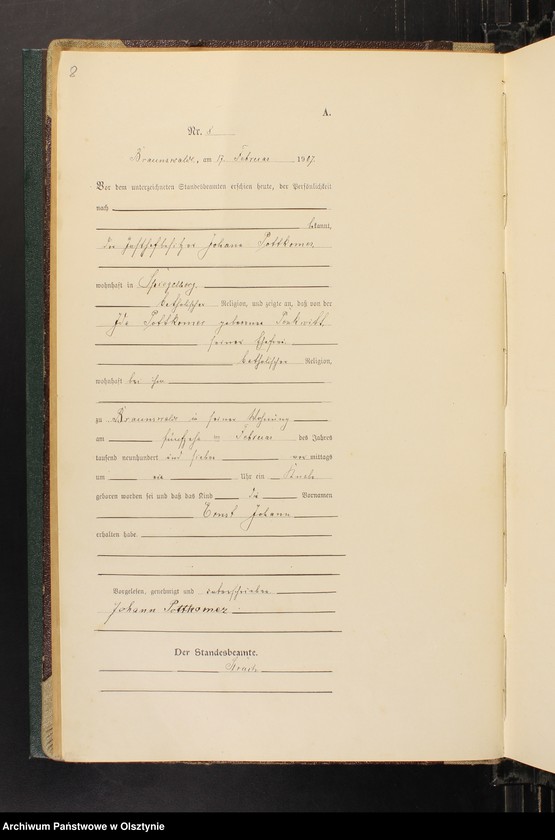 8
A.
Nr. 8
Braunswalde, am 17. Februar 1907.
Vor dem unterzeichneten Standesbeamten erschien heute, der Persönlichkeit
nach
bekannt,
der Johann Pottkomez
wohnhaft in Spiegelberg,
katholischer Religion, und zeigte an, daß von der
Ida Pottkomez geborene
seiner Ehefrau
katholischer Religion,
wohnhaft bei ihm
zu Braunswalde in seiner Wohnung
am fünfzehn ten Februar des Jahres
tausend neunhundert und sieben vor mittags
um Uhr ein Knabe
geboren worden sei und daß das Kind die Vornamen
Ernst Johann
erhalten habe.
Vorgelesen, genehmigt und unterschrieben
Johann Pottkomez
Der Standesbeamte.
Archiwum Państwowe w Olsztynie